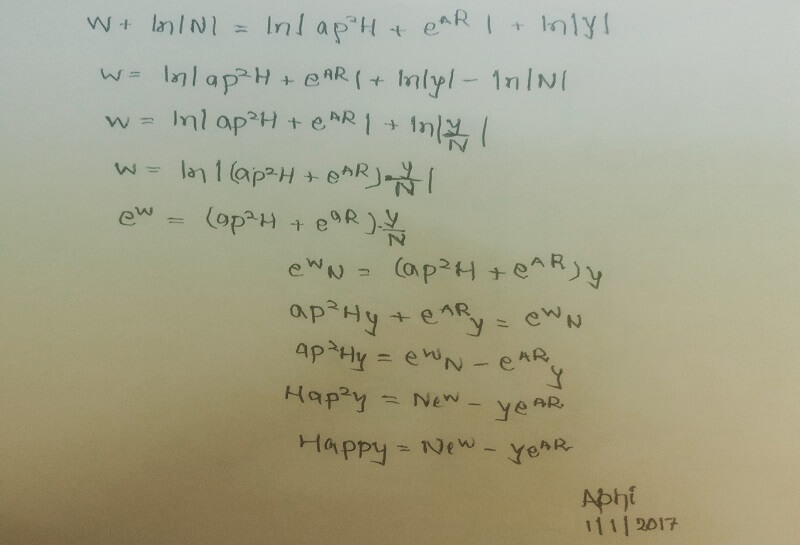 W + ln|N| = ln|ap²H + e^AR| + ln|y|
W = ln|ap²H + e^AR| + ln|y| - ln|N|
W = ln|ap²H + e^AR| + ln|y/N|
W = ln|(ap²H + e^AR).y/N|
e^W = (ap²H + e^aR).y/N
e^W N = (ap²H + e^AR)y
ap²Hy + e^AR y = e^W N
ap²Hy = e^W N - e^AR y
Hap²y = Ne^W - ye^AR
Happy = Ne^W - ye^AR
Abhi
1/1/2017